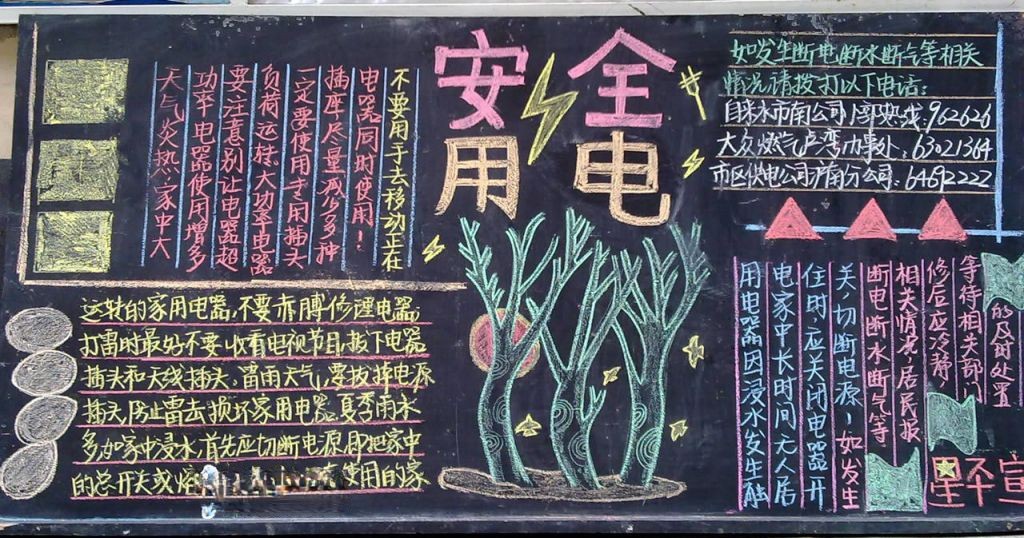 安全
用电
天气炎热家中大
功率电器使用增多
要注意别让电器超
负荷运转大功率电器
一定要使用专用插头
插座尽量减少多种
电器同时使用!
不要用手去移动正在
运转的家用电器,不要赤膊修理电器;
打雷时最好不要收看电视节目,拔下电器
插头和天线插头,雷雨天气,要拔掉电源
插头防止雷击损坏家用电器.夏季雨水
多如家中浸水首先应切断电源即把家中
的总开关或熔 使用的家
用电器因浸水发生触
电家中长时间无人居
住时,应关闭电器开
关,切断电源!如发生
断电断水断气等
相关情况居民报
修后应冷静,
等待相关部门
的及时处置
如发生断电断水断气等相关
情况请拨打以下电话:
自来水市南公司 热线.962626
大众燃气卢湾办事处:63021364
市区供电公司沪南分公司:64692222
宣